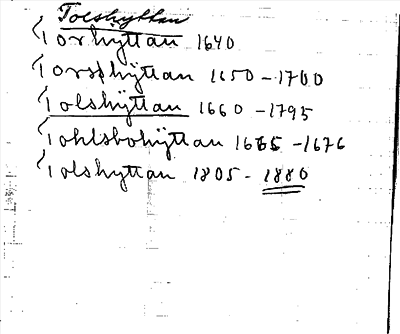 Tolshyttan
Torhÿttan 1640
Torshÿttan 1650-1700
Tolshÿttan 1660-1795
Tohlsbohÿttan 1665-1676
Tolshyttan 1805-1880